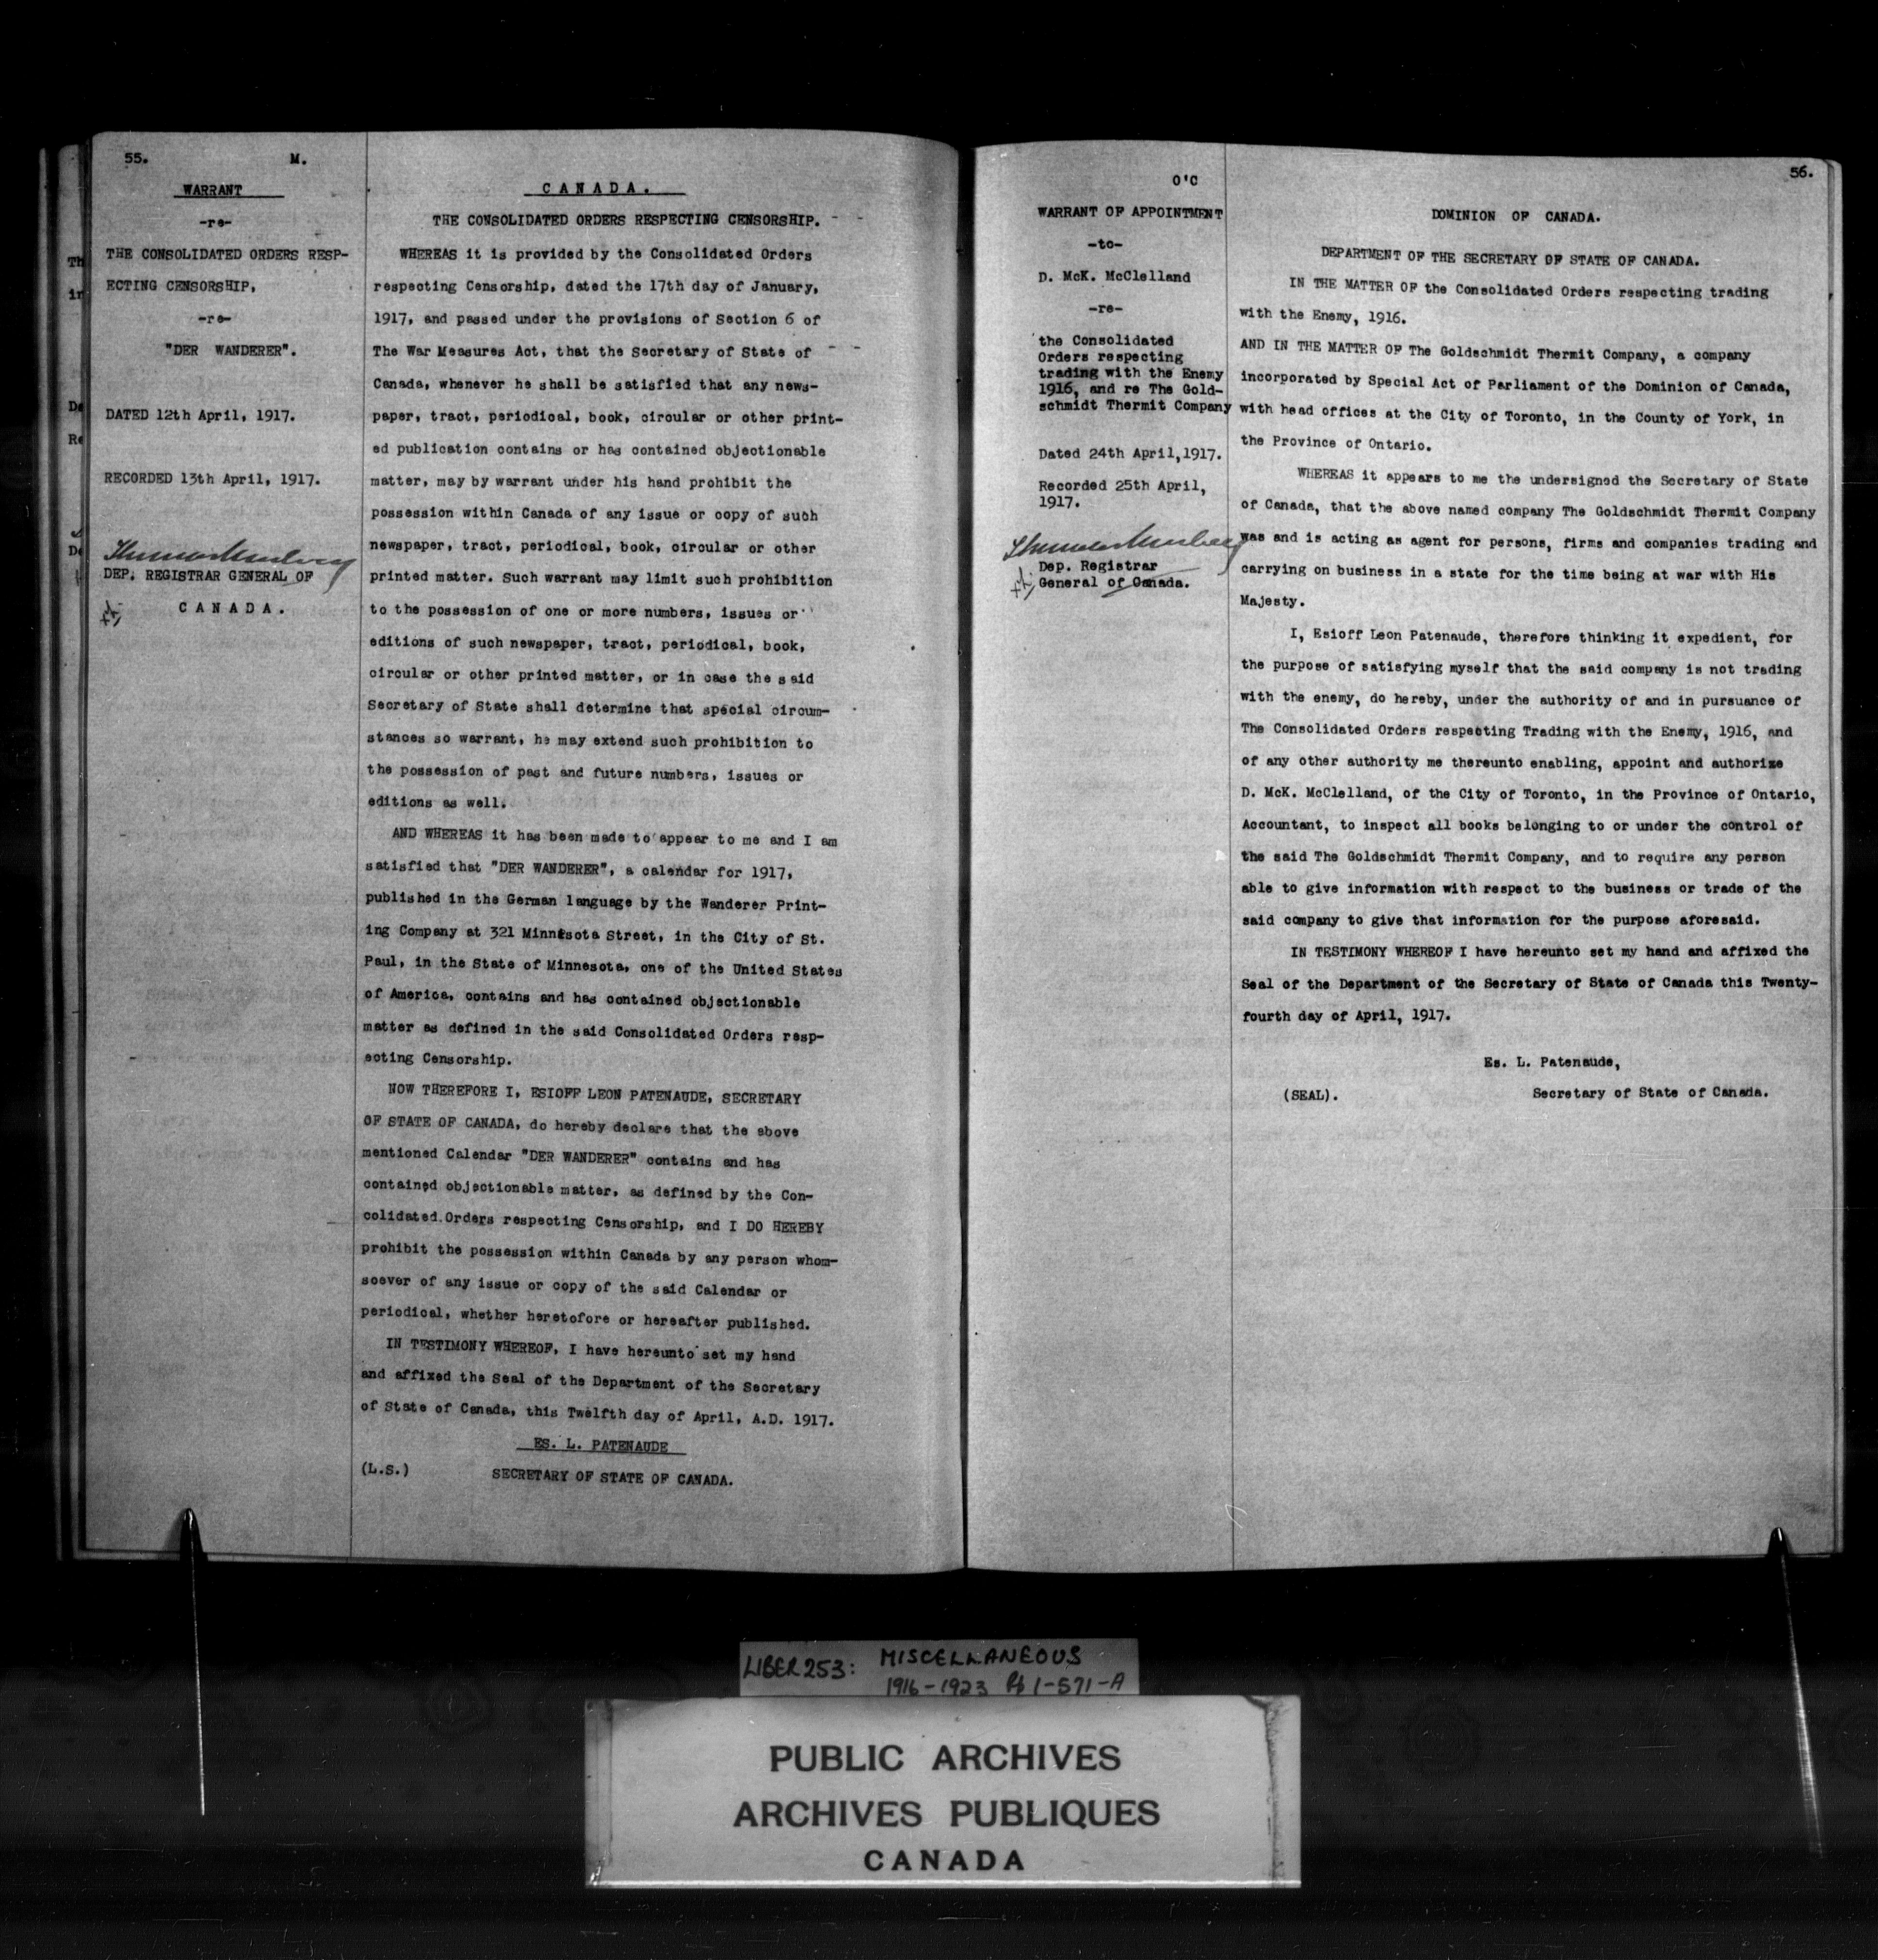 55. M.
WARRANT
-re-
THE CONSOLIDATED ORDERS RESP-
ECTING CENSORSHIP,
-re-
"DER WANDERER".
DATED 12th April, 1917.
RECORDED 13th April, 1917.
DEP. REGISTRAR GENERAL OF
CANADA.
CANADA.
THE CONSOLIDATED ORDERS RESPECTING CENSORSHIP.
WHEREAS it is provided by the Consolidated Orders
respecting Censorship, dated the 17th day of January,
1917, and passed under the provisions of Section 6 of
The War Measures Act, that the Secretary of State of
Canada, whenever he shall be satisfied that any news-
paper, tract, periodical, book, circular or other print-
ed publication contains or has contained objectionable
matter, may by warrant under his hand prohibit the
possession within Canada of any issue or copy of such
newspaper, tract, periodical, book, circular or other
printed matter. Such warrant may limit such prohibition
to the possession of one or more numbers, issues or
editions of such newspaper, tract, periodical, book,
circular or other printed matter, or in case the said
Secretary of State shall determine that special circum-
stances so warrant, he may extend such prohibition to
the possession of past and future numbers, issues or
editions as well.
AND WHEREAS it has been made to appear to me and I am
satisfied that "DER WANDERER", a calendar for 1917,
published in the German language by the Wanderer Print-
ing Company at 321 Minnesota Street, in the City of St.
Paul, in the State of Minnesota, one of the United States
of America, contains and has contained objectionable
matter as defined in the said Consolidated Orders resp-
ecting Censorship.
NOW THEREFORE I, ESIOFF LEON PATENAUDE, SECRETARY
OF STATE OF CANADA, do hereby declare that the above
mentioned Calendar "DER WANDERER" contains and has
contained objectionable matter, as defined by the Con-
colidated Orders respecting Censorship, and I DO HEREBY
prohibit the possession within Canada by any person whom-
soever of any issue or copy of the said Calendar or
periodical, whether heretofore or hereafter published.
IN TESTIMONY WHEREOF, I have hereunto set my hand
and affixed the Seal of the Department of the Secretary
of State of Canada, this Twelfth day of April, A.D. 1917.
ES. L. PATENAUDE
(L.S.) SECRETARY OF STATE OF CANADA.
56.
O'C
WARRANT OF APPOINTMENT
-to-
D. McK. McClelland
-re-
the Consolidated
Orders respecting
trading with the Enemy
1916, and re The Gold-
schmidt Thermit Company
Dated 24th April,1917.
Recorded 25th April,
1917.
Dep. Registrar
General of Canada.
DOMINION OF CANADA.
DEPARTMENT OF THE SECRETARY OF STATE OF CANADA.
IN THE MATTER OF the Consolidated Orders respecting trading
with the Enemy, 1916.
AND IN THE MATTER OF The Goldschmidt Thermit Company, a company
incorporated by Special Act of Parliament of the Dominion of Canada,
with head offices at the City of Toronto, in the County of York, in
the Province of Ontario.
WHEREAS it appears to me the undersigned the Secretary of State
of Canada, that the above named company The Goldschmidt Thermit Company
was and is acting as agent for persons, firms and companies trading and
carrying on business in a state for the time being at war with His
Majesty.
I, Esioff Leon Patenaude, therefore thinking it expedient, for
the purpose of satisfying myself that the said company is not trading
with the enemy, do hereby, under the authority of and in pursuance of
The Consolidated Orders respecting Trading with the Enemy, 1916, and
of any other authority me thereunto enabling, appoint and authorize
D. McK. McClelland, of the City of Toronto, in the Province of Ontario,
Accountant, to inspect all books belonging to or under the control of
the said The Goldschmidt Thermit Company, and to require any person
able to give information with respect to the business or trade of the
said company to give that information for the purpose aforesaid.
IN TESTIMONY WHEREOF I have hereunto set my hand and affixed the
Seal of the Department of the Secretary of State of Canada this Twenty-
fourth day of April, 1917.
Es. L. Patenaude,
(SEAL). Secretary of State of Canada.
LIBER 253: MISCELLANEOUS
1916-1923 Pg 1-571-A
PUBLIC ARCHIVES
ARCHIVES PUBLIQUES
CANADA